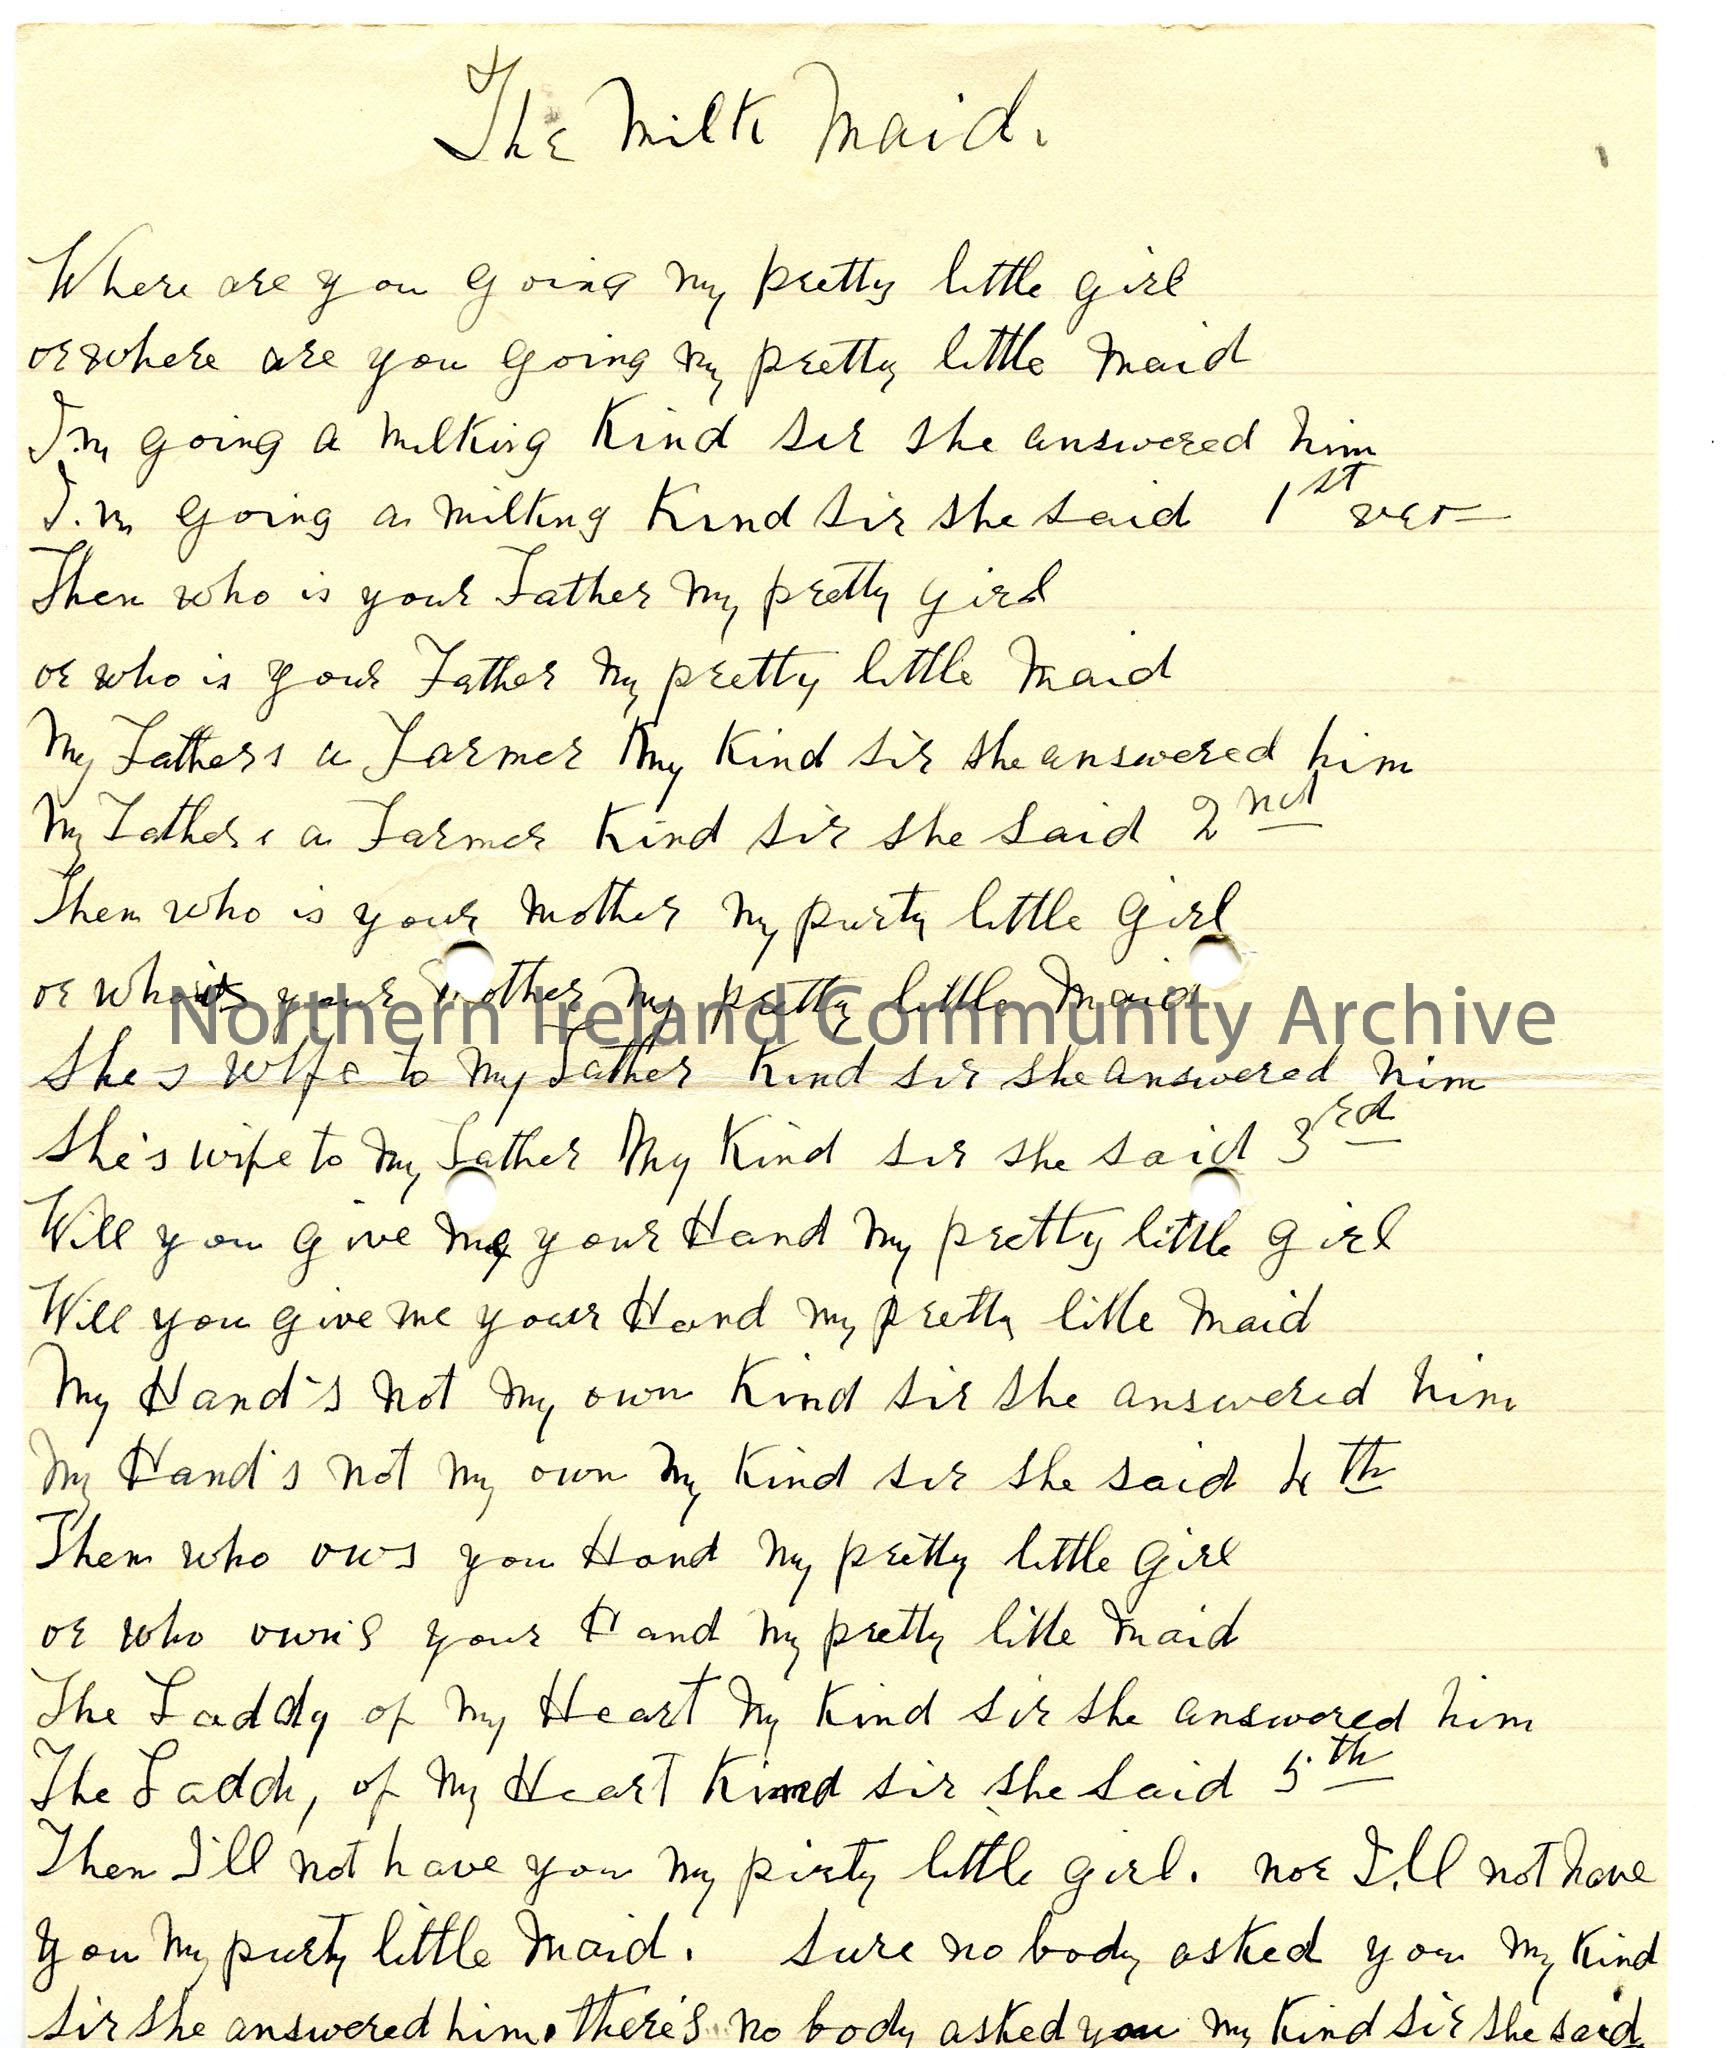 The Milk Maid.
Where are you going my pretty little girl
or where are you going my pretty little Maid
I.m going a milking Kind sir she answered him
I.m going a milking Kind sir she said 1st ver
Then who is your Father my pretty girl
or who is your Father my pretty little Maid
My Fathers a Farmer My Kind sir she answered him
My Fathers a Farmer Kind sir she said 2nd
Then who is your mother my purty little girl
or who is your mother my pretty little Maid
Northern Ireland Community Archive
She s wife to my Father Kind sir she answered him
She's wife to my Father My Kind sir she said 3rd
Will you give me your Hand my pretty little girl
Will you give me your Hand my pretty little Maid
My Hand's not my own Kind sir she answered him
My Hand's not my own my Kind sir she said 4th
Then who ows you Hand my pretty little girl
or who owns your Hand my pretty little Maid
The Laddy of my Heart my Kind sir she answered him
The Laddy of my Heart Kind sir she said 5th
Then I'll not have you my pirty little girl. nor I.ll not have
you my purty little Maid. Sure no body asked you my Kind
sir she answered him. there's no body asked you my Kind sir she said